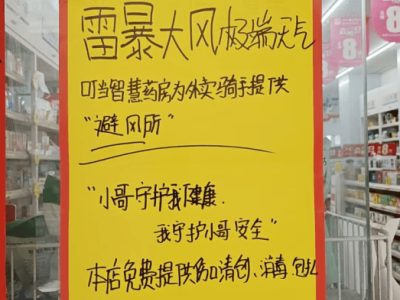 雷暴大风极端天气
叮当智慧药房为外卖骑手提供
"避风所"
"小哥守护我健康.
我守护小哥安全"
本店免费提供伤口清创、消毒、包扎